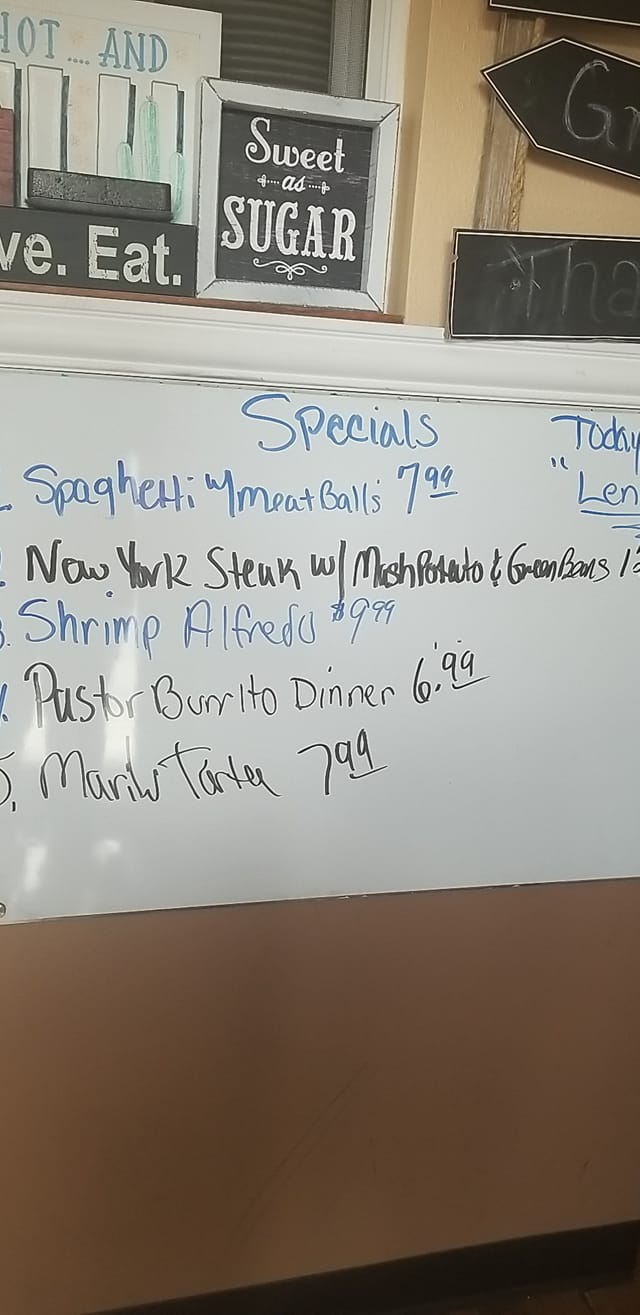 HOT .... AND
ve. Eat.
Sweet
as
SUGAR
Gr
Tha
Specials
Today
" Len
Spaghetti w/ meatBalls 7.99
New York Steak w/ Mash Potato & Green Bans 1
3. Shrimp Alfredo $9.99
Pastor Burrito Dinner 6.99
5. Torta 7.99